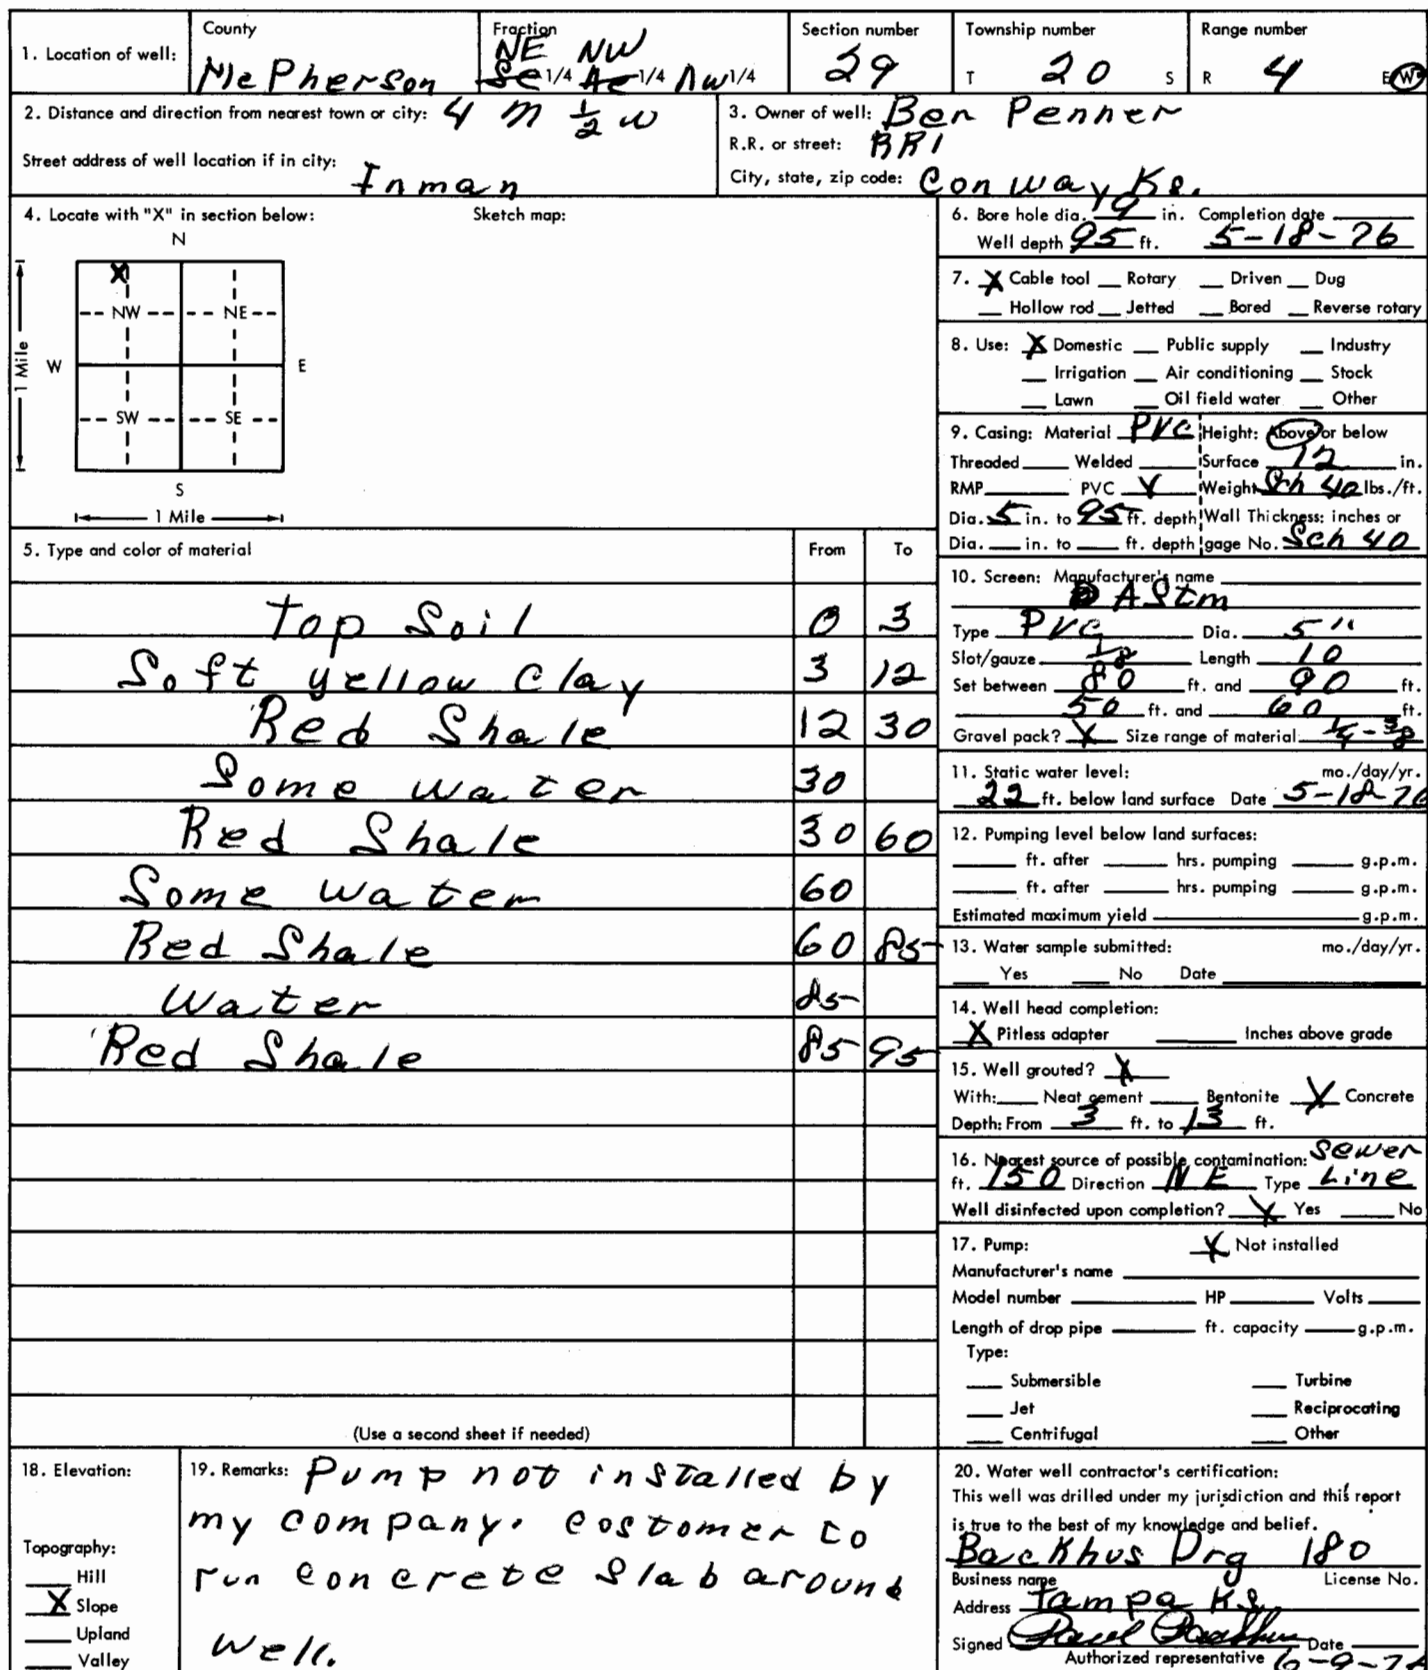 1. Location of well:
County
McPherson
Fraction
NE NW
1/4 1/4 NW 1/4
Section number
29
Township number
T 20 S
Range number
R 4 E W
2. Distance and direction from nearest town or city: 4 m 1/2 w
Street address of well location if in city:
Inman
3. Owner of well: Ben Penner
R.R. or street: RR1
City, state, zip code: Conway Ks.
4. Locate with "X" in section below:
Sketch map:
N
X
NW NE
W E
1 Mile
SW SE
S
1 Mile
5. Type and color of material From To
Top Soil 0 3
Soft yellow Clay 3 12
Red Shale 12 30
Some water 30
Red Shale 30 60
Some water 60
Red Shale 60 85
Water 85
Red Shale 85 95
(Use a second sheet if needed)
6. Bore hole dia. in. Completion date
Well depth 95 ft. 5-18-76
7. X Cable tool Rotary Driven Dug
Hollow rod Jetted Bored Reverse rotary
8. Use: X Domestic Public supply Industry
Irrigation Air conditioning Stock
Lawn Oil field water Other
9. Casing: Material PVC Height: Above or below
Threaded Welded Surface 12 in.
RMP PVC X Weight Sch 40 lbs./ft.
Dia. 5 in. to 95 ft. depth Wall Thickness: inches or
Dia. in. to ft. depth gage No. Sch 40
10. Screen: Manufacturer's name
AStm
Type PVC Dia. 5"
Slot/gauze 1/8 Length 10
Set between 80 ft. and 90 ft.
50 ft. and 60 ft.
Gravel pack? X Size range of material 1/4-3/8
11. Static water level: mo./day/yr.
22 ft. below land surface Date 5-18-76
12. Pumping level below land surfaces:
ft. after hrs. pumping g.p.m.
ft. after hrs. pumping g.p.m.
Estimated maximum yield g.p.m.
13. Water sample submitted: mo./day/yr.
Yes No Date
14. Well head completion:
X Pitless adapter Inches above grade
15. Well grouted? X
With: Neat cement Bentonite X Concrete
Depth: From 3 ft. to 13 ft.
16. Nearest source of possible contamination: Sewer
ft. 150 Direction NE Type Line
Well disinfected upon completion? X Yes No
17. Pump: X Not installed
Manufacturer's name
Model number HP Volts
Length of drop pipe ft. capacity g.p.m.
Type:
Submersible Turbine
Jet Reciprocating
Centrifugal Other
18. Elevation:
Topography:
Hill
X Slope
Upland
Valley
19. Remarks: Pump not installed by
my company. Costomer to
run concrete Slab around
well.
20. Water well contractor's certification:
This well was drilled under my jurisdiction and this report
is true to the best of my knowledge and belief.
Backhus Drg 180
Business name License No.
Address Tampa Ks.
Signed Date
Authorized representative 6-9-76